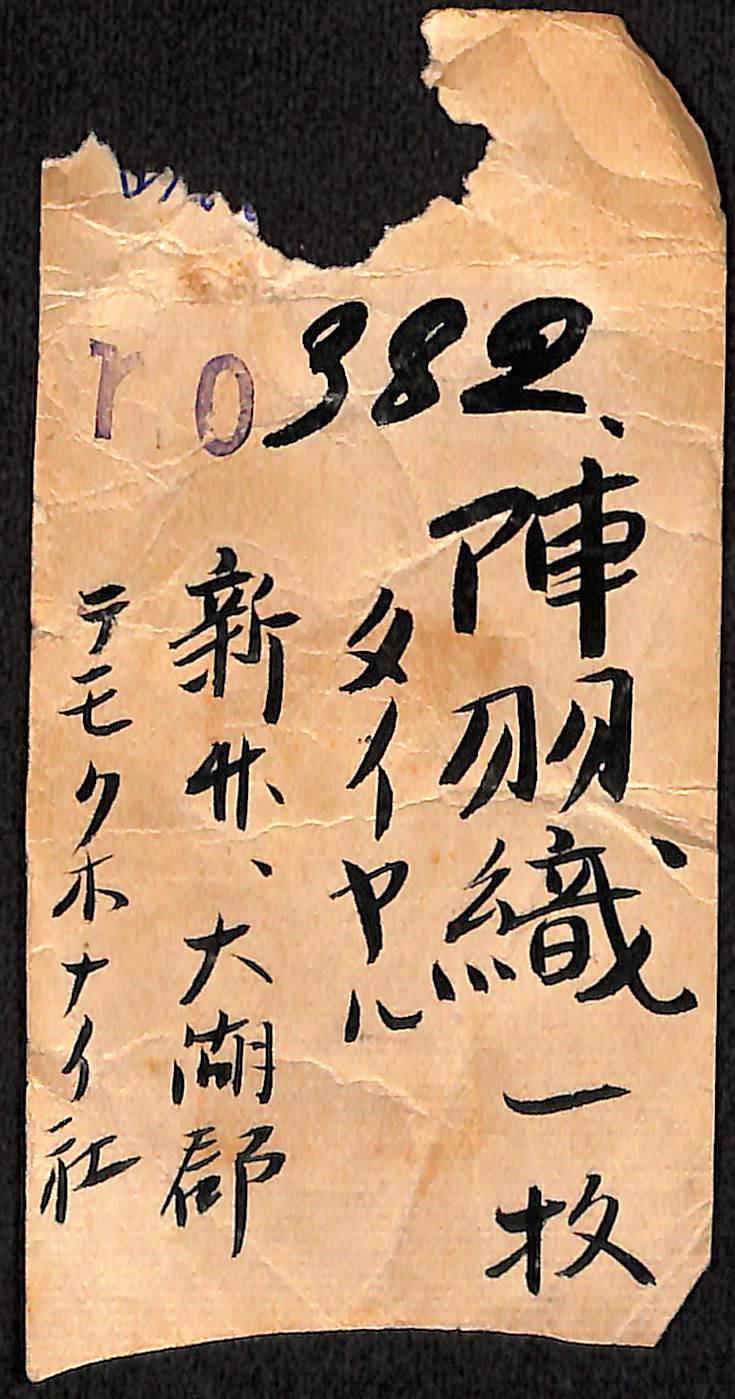 382、
陣羽織、一枚
タイヤル
新竹、大湖郡
テモクホナイ社